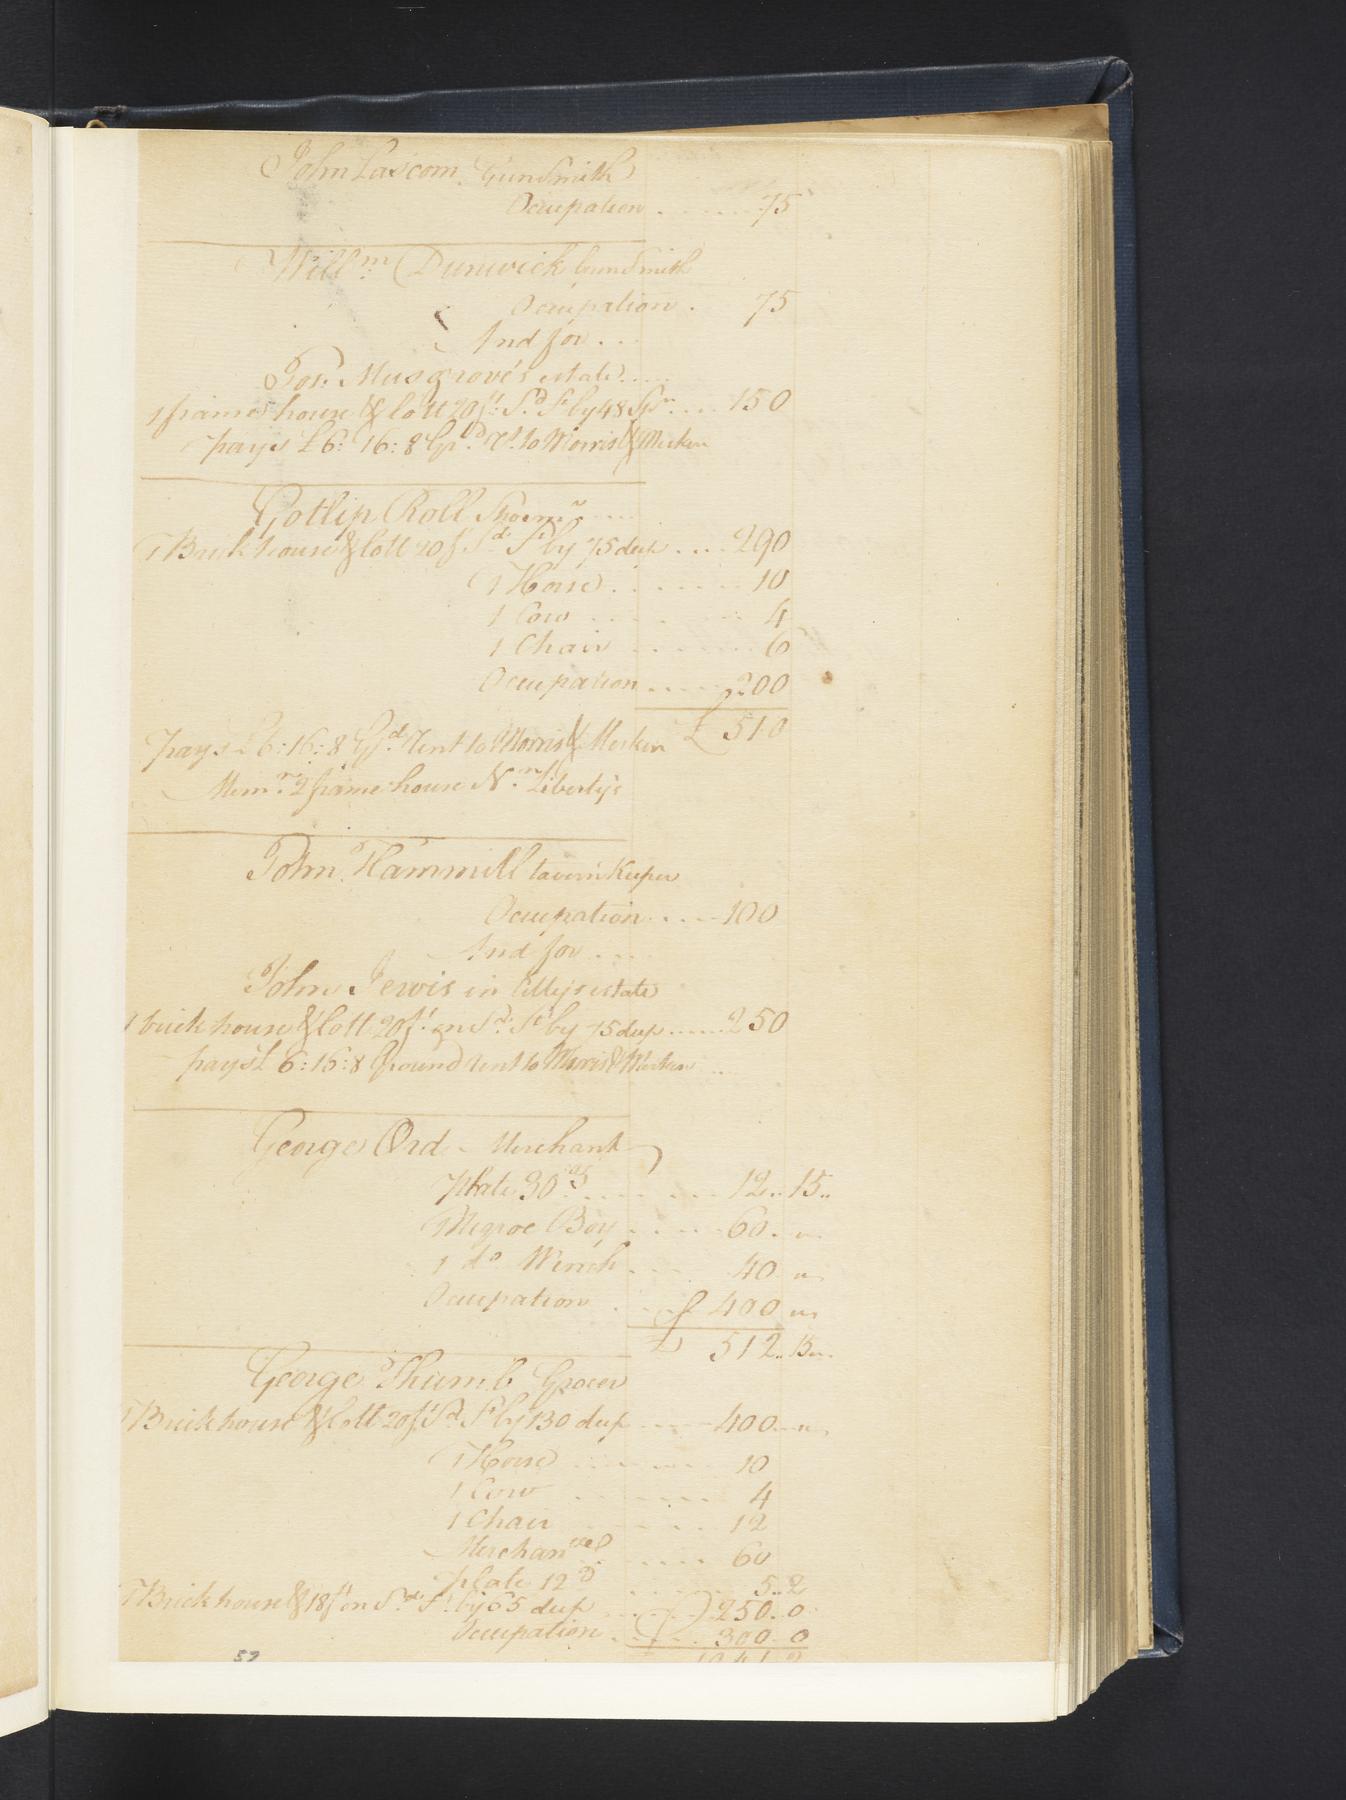 John Lascom Gunsmith
Occupation ....... 75
Will.m Dunwick Gunsmith
Occupation . 75
And for ...
Jos. Musgrove's estate ....
1 frame house & lott 20 f.t S.d S.t by 48 .... 150
pays £6: 16: 8 G.d R.t to Morris & Merken
Gotlip Roll Shoem.r ....
1 Brick house & lott 20 f S.d S.t by 75 deep .... 290
1 Horse ....... 10
1 Cow ....... 4
1 Chair ....... 6
Occupation ..... 200
£ 510
pays £6:16:8 G.d Rent to Morris & Merken
Mem.m 2 frame house N.n Liberty's
John Hammill tavern Keeper
Occupation ..... 100
And for ....
John Jervis in estate
1 brick house & lott 20 f.t on S.d S.t by 75 deep ...... 250
pays £6:16:8 Ground rent to Morris & Merken ...
George Ord - Merchant
Plate 30 oz ....... 12.. 15..
1 Negroe Boy ..... 60. "
1 d.o Wench .... 40 "
Occupation . .. £ 400 "
£ 512.. 15..
George Thumb Grocer
1 Brick house & lott 20 f.t S.d S.t by 130 deep ..... 400.. "
1 Horse ....... 10
1 Cow ....... 4
1 Chair ..... 12
Merchan.ze ..... 60
plate 12 ...... 5.. 2
1 Brick house & 18 f.t on S.d S.t by 65 deep ..... 250. 0
Occupation ...... 300. 0
1041 2
57